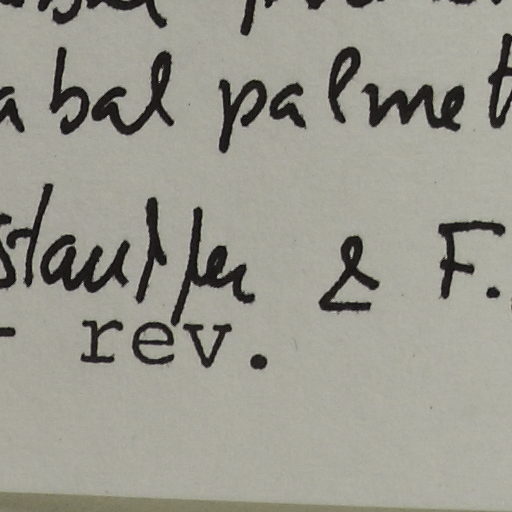 abal palmet
stauffer & F.
- rev.